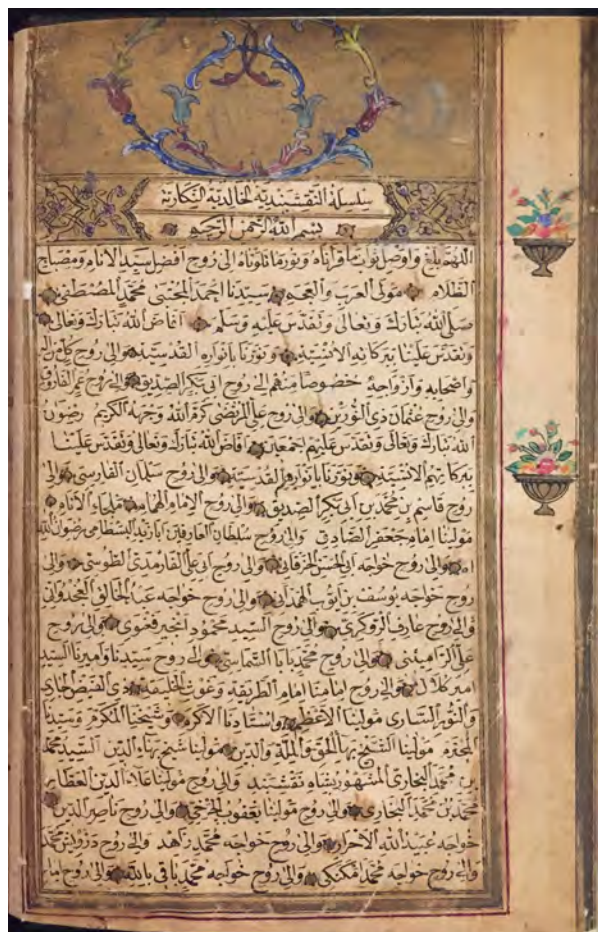 سلسلة النقشبندية الخالدية النكارية
بسم الله الرحمن الرحيم
اللهم بلغ واوصل ثواب ما قرأناه ونور ما تلوناه الى روح افضل سيد الانام ومصباح
الظلام مولى العرب والعجم سيدنا احمد المجتبى محمد المصطفى
صلى الله تبارك وتعالى وتقدس عليه وسلم افاض الله تبارك وتعالى
وتقدس علينا ببركاته الانسية ونورنا بانواره القدسية والى روح كل من اله
واصحابه وازواجه خصوصا منهم الى روح ابى بكر الصديق والى روح عمر الفاروق
والى روح عثمان ذى النورين والى روح على المرتضى كرم الله وجهه الكريم رضوان
الله تبارك وتعالى وتقدس عليهم اجمعين افاض الله تبارك وتعالى وتقدس علينا
ببركاتهم الانسية ونورنا بانوارهم القدسية والى روح سلمان الفارسى والى
روح قاسم بن محمد بن ابى بكر الصديق والى روح الامام الهمام ملجاء الانام
مولينا امام جعفر الصادق والى روح سلطان العارفين ابا يزيد البسطامى رضوان الله
والى روح خواجه ابى الحسن الخرقانى والى روح ابى على الفارمدى الطوسى والى
روح خواجه يوسف بن ايوب الهمدانى والى روح خواجه عبد الخالق الغجدوانى
والى روح عارف الريوكرى والى روح السيد محمود انجير فغنوى والى روح
على الراميتنى والى روح محمد بابا السماسى والى روح سيدنا واميرنا السيد
امير كلال والى روح امامنا امام الطريقة وغوث الخليقة ذى الفيض الجارى
والنور السارى مولينا الاعظم واستادنا الاكرم وشيخنا المكرم وسيدنا
المحترم مولينا الشيخ بهاء الحق والملة والدين مولينا شيخ بهاء الدين السيد محمد
بن محمد البخارى المشهور بشاه نقشبند والى روح مولينا علاء الدين العطار
محمد بن محمد البخارى والى روح مولينا يعقوب الجرخى والى روح ناصر الدين
خواجه عبيد الله الاحرار والى روح خواجه محمد زاهد والى روح درويش محمد
والى روح خواجه محمد امكنكى والى روح خواجه محمد باقى بالله والى روح امام